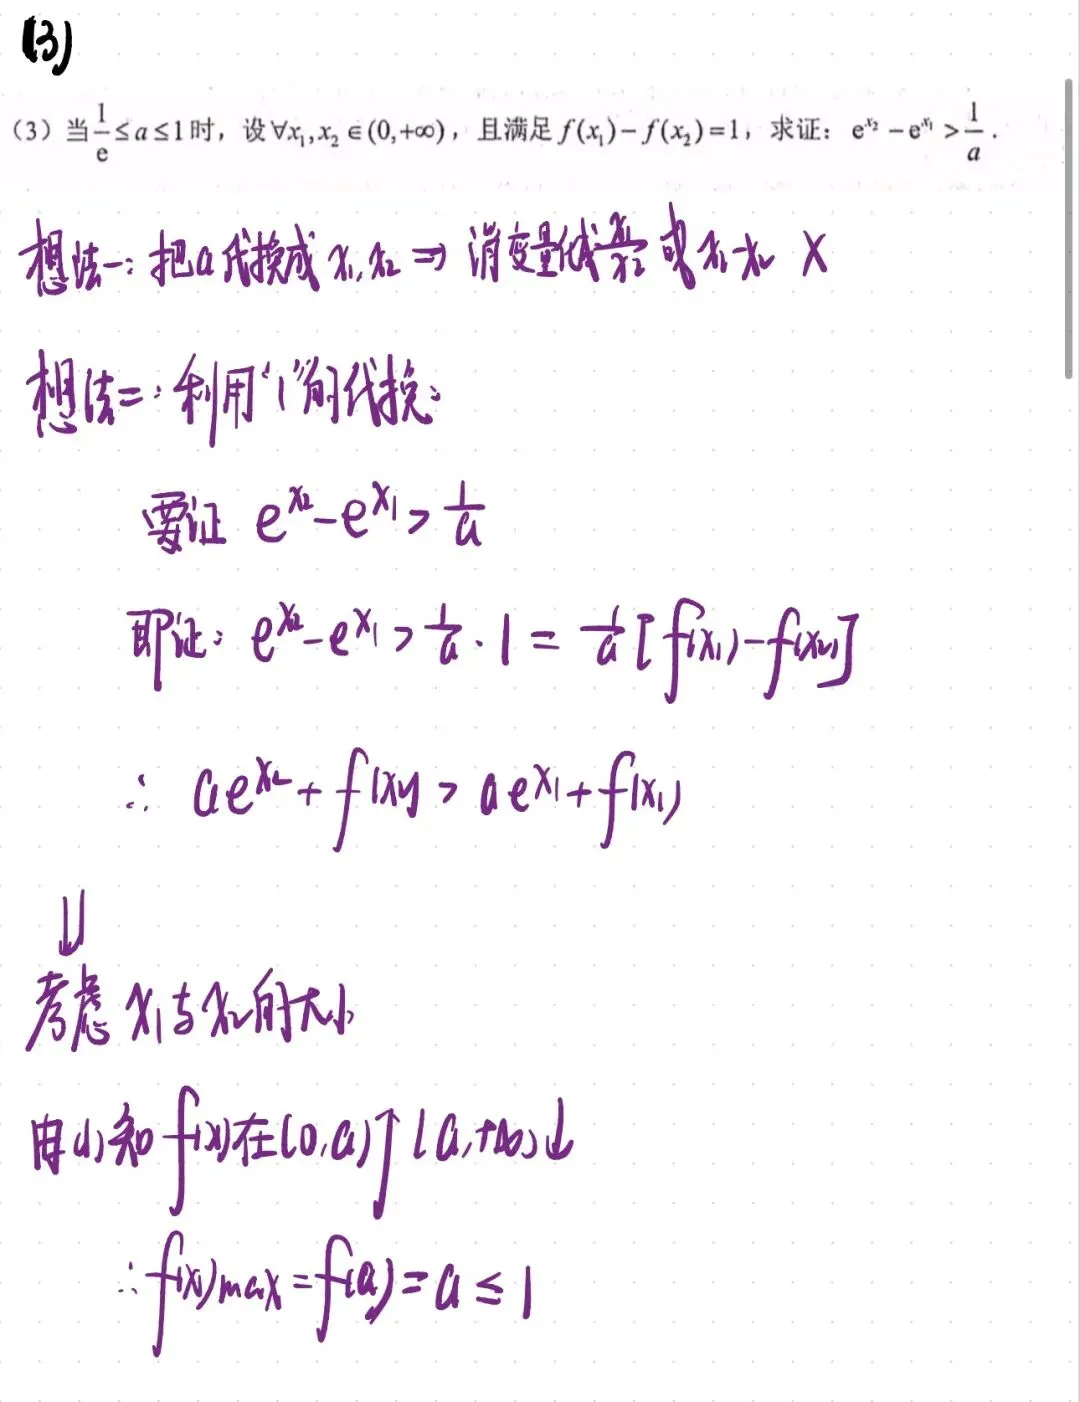 (3)
（3）当1/e≤a≤1时，设∀x₁,x₂∈(0,+∞)，且满足f(x₁)−f(x₂)=1，求证：e^{x₂}−e^{x₁}>1/a.
想法一：把a代换成x₁,x₂ ⇒ 消变量化成x₁/x₂或x₁-x₂ ×
想法二：利用“1”的代换：
要证 e^{x₂}-e^{x₁}>1/a
即证：e^{x₂}-e^{x₁}>1/a·1=1/a[f(x₁)-f(x₂)]
∴ ae^{x₂}+f(x₂)>ae^{x₁}+f(x₁)
⇓
考虑x₁与x₂的大小
由(1)知f(x)在(0,a)↑(a,+∞)↓
∴f(x)max=f(a)=a≤1